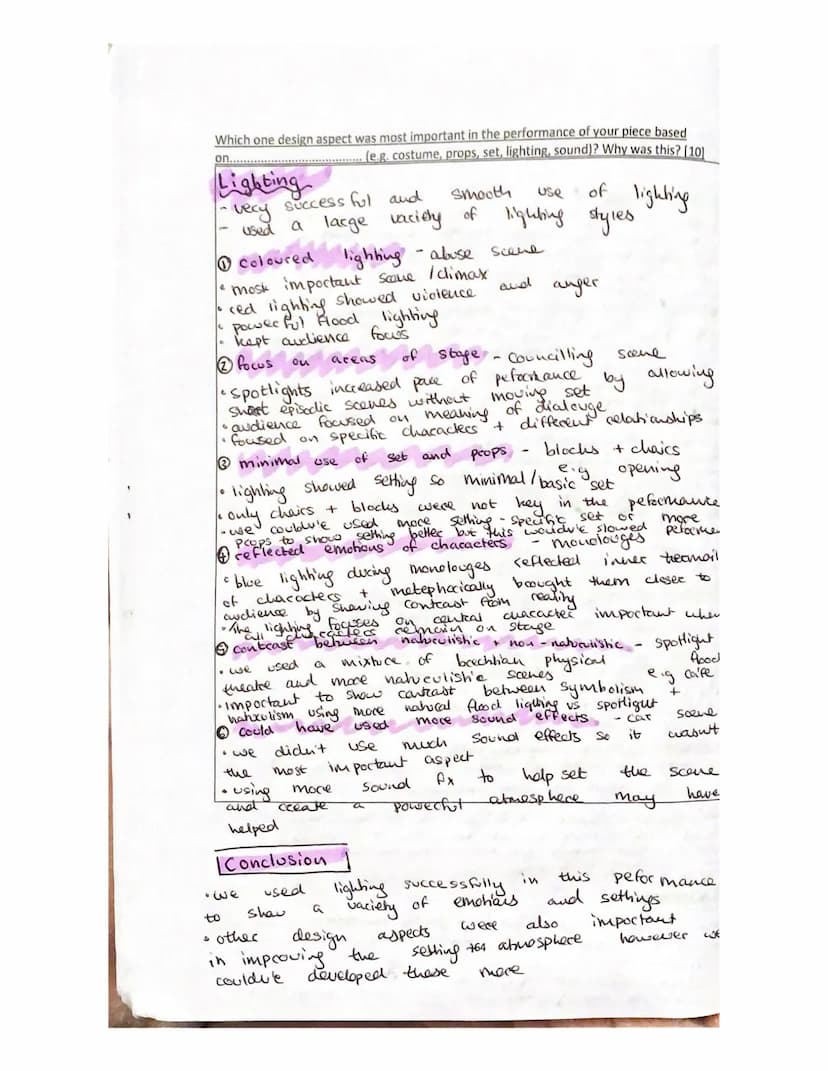 Which one design aspect was most important in the performance of your piece based
on...................................... (e.g. costume, props, set, lighting, sound)? Why was this? [10]
Lighting
- very successful and smooth use of lighting
- used a large variety of lighting styles
① coloured lighting - abuse scene
• most important scene /climax
• red lighting showed violence and anger
• powerful flood lighting
• kept audience focus
② focus on areas of stage - councilling scene
• spotlights increased pace of peformance by allowing
short episodic scenes without moving set
• audience focused on meaning of dialouge
• foused on specific characters + different relationships
③ minimal use of set and props - blocks + chairs
e.g opening
• lighting showed setting so minimal/basic set
• only chairs + blocks were not key in the peformance
• we couldv'e used more setting-specific set or more
props to show setting better but this wouldv'e slowed peforme
④ reflected emotions of characters - monolouges
• blue lighting during monolouges reflected inner termoil
of characters + metephorically brought them closer to
audience by showing contrast from reality
• The lighting focuses on central character important when
all characters remain on stage
⑤ contrast between naturulistic + non-naturulistic - spotlight
flood
• we used a mixture of brechtian physical
theatre and more naturulistic scenes e.g cafe
• important to show contrast between symbolism +
naturulism using more natural flood lighting vs spotlight
⑥ could have used more sound effects - car scene
• we didn't use much sound effects so it wasn't
the most important aspect
• using more sound fx to help set the scene
and create a powerful atmosphere may have
helped
Conclusion
• we used lighting successfully in this peformance
to show a variety of emotions and settings
• other design aspects were also important
in improving the setting + atmosphere however we
couldv'e developed these more